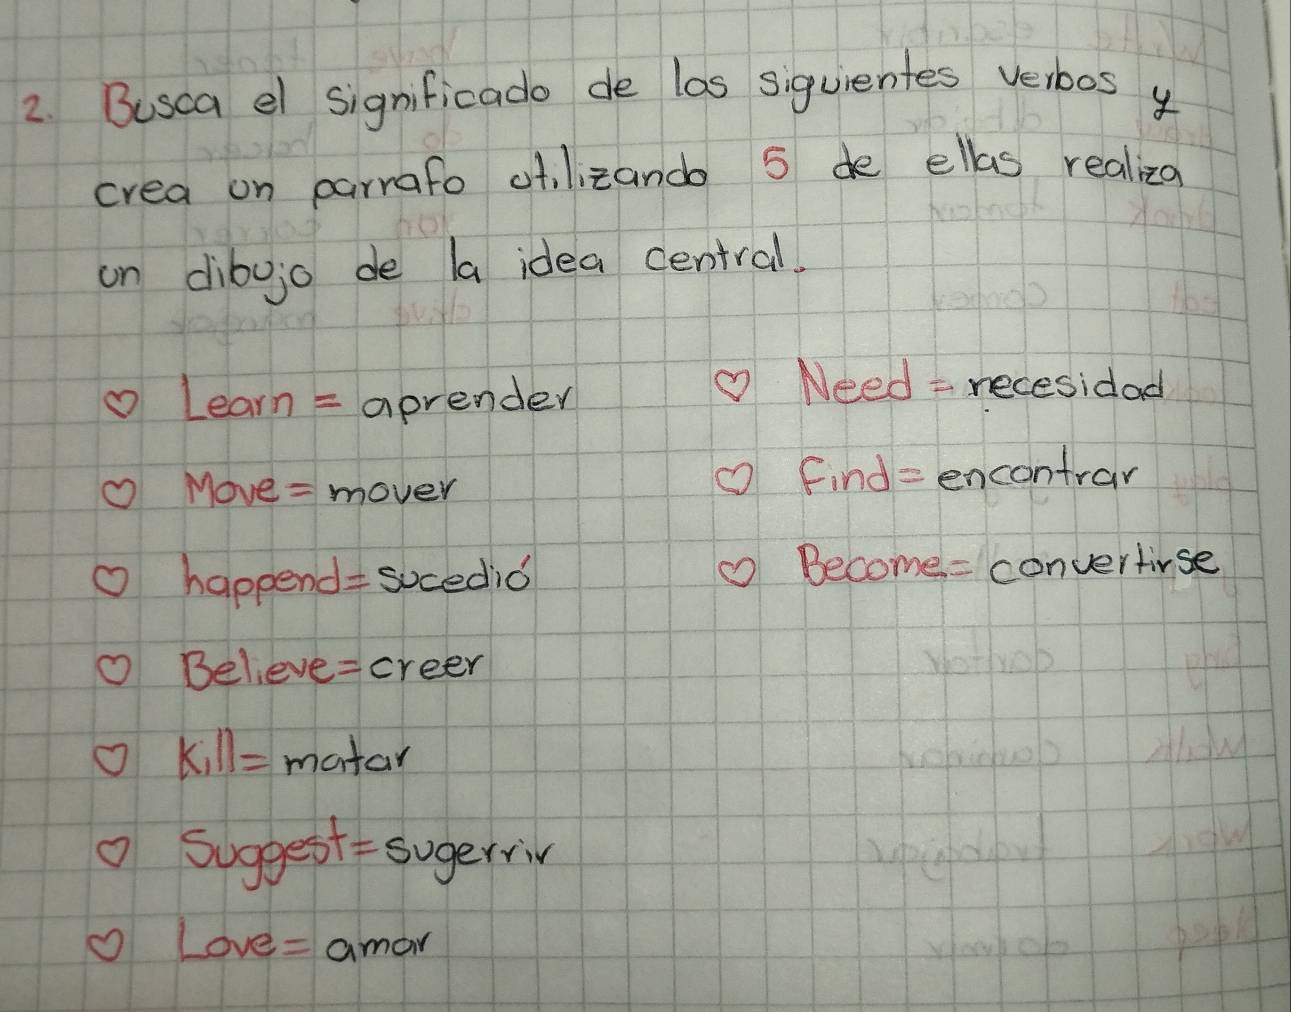 2. Busca el significado de los siguientes verbos y
crea un parrafo utilizando 5 de ellas realiza
un dibujo de la idea central.
♡ Learn = aprender
♡ Move = mover
♡ happend = sucedió
♡ Believe = creer
♡ Kill = matar
♡ Suggest = sugerrir
♡ Love = amar
♡ Need = necesidad
♡ Find = encontrar
♡ Become = convertirse